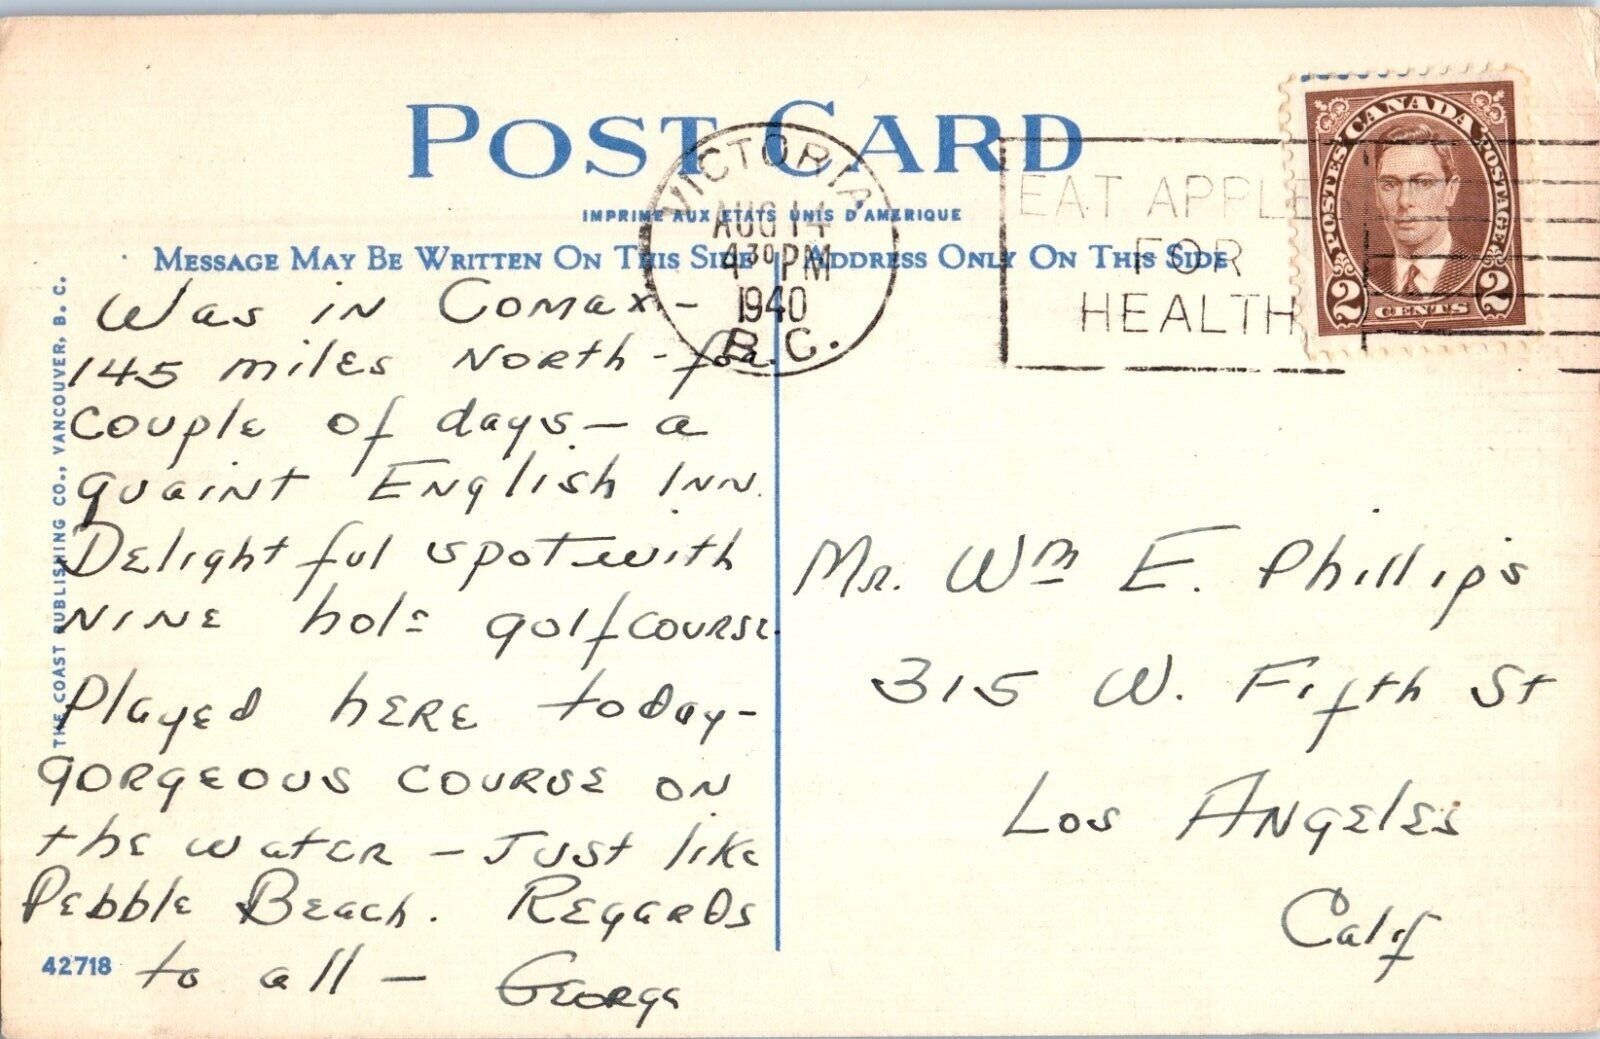 POST CARD
VICTORIA
AUG 14
4 30 PM
1940
B.C.
EAT APPLES
FOR
HEALTH
CANADA
POSTES POSTAGE
2 CENTS 2
IMPRIME AUX ETATS UNIS D'AMERIQUE
MESSAGE MAY BE WRITTEN ON THIS SIDE
ADDRESS ONLY ON THIS SIDE
Was in Comax -
145 miles North - for
couple of days - a
quaint English Inn.
Delightful spot with
nine hole golf course.
Played here today -
gorgeous course on
the water - Just like
Pebble Beach. Regards
to all - George
Mr. Wm E. Phillips
315 W. Fifth St
Los Angeles
Calif
THE COAST PUBLISHING CO., VANCOUVER, B. C.
42718